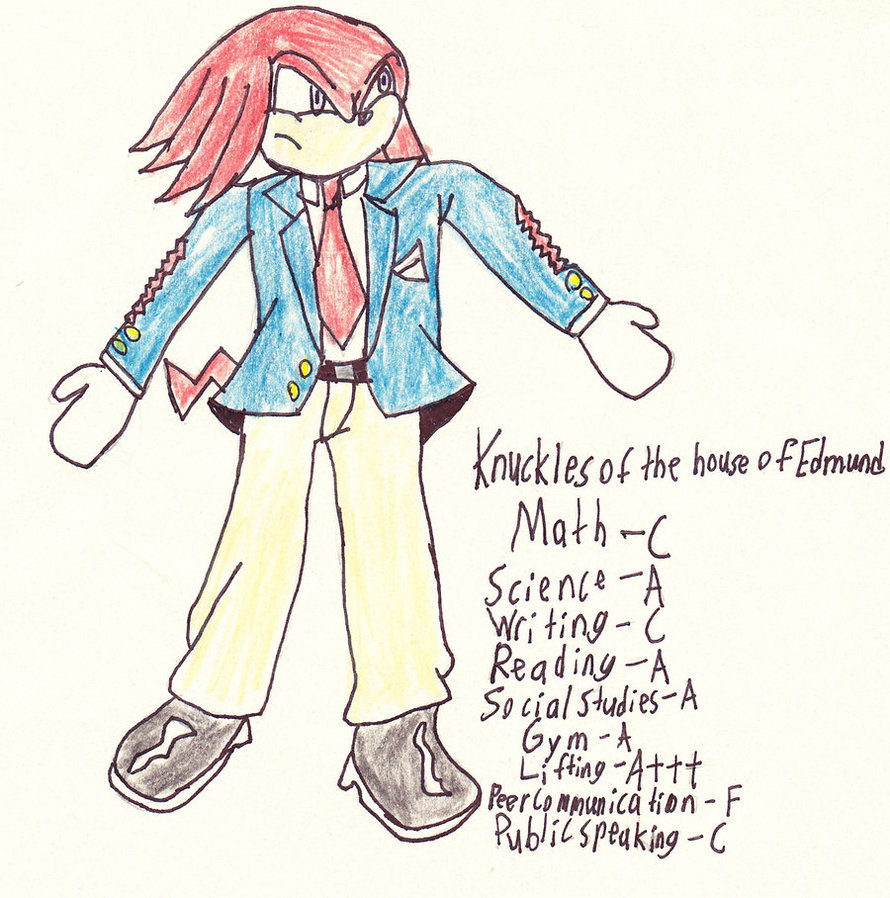 Knuckles of the house of Edmund
Math - C
Science - A
Writing - C
Reading - A
Social studies - A
Gym - A
Lifting - A+++
Peer communication - F
Public speaking - C